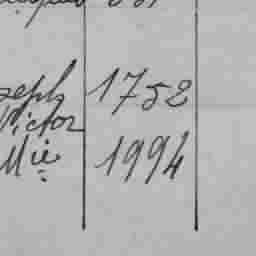 seph 1752
Victor
Mie 1994